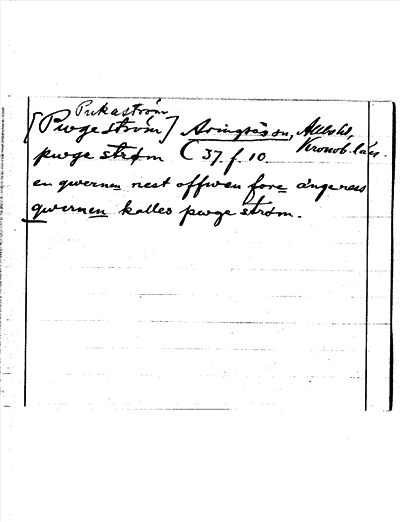 Pukaström
[Pwgeström] Aringsås sn, Allbo hd,
Kronob. län.
pwge strøm C 37 f. 10.
en qwernen nest offwen fore ångeræs
qwernen kalles pwge strøm.